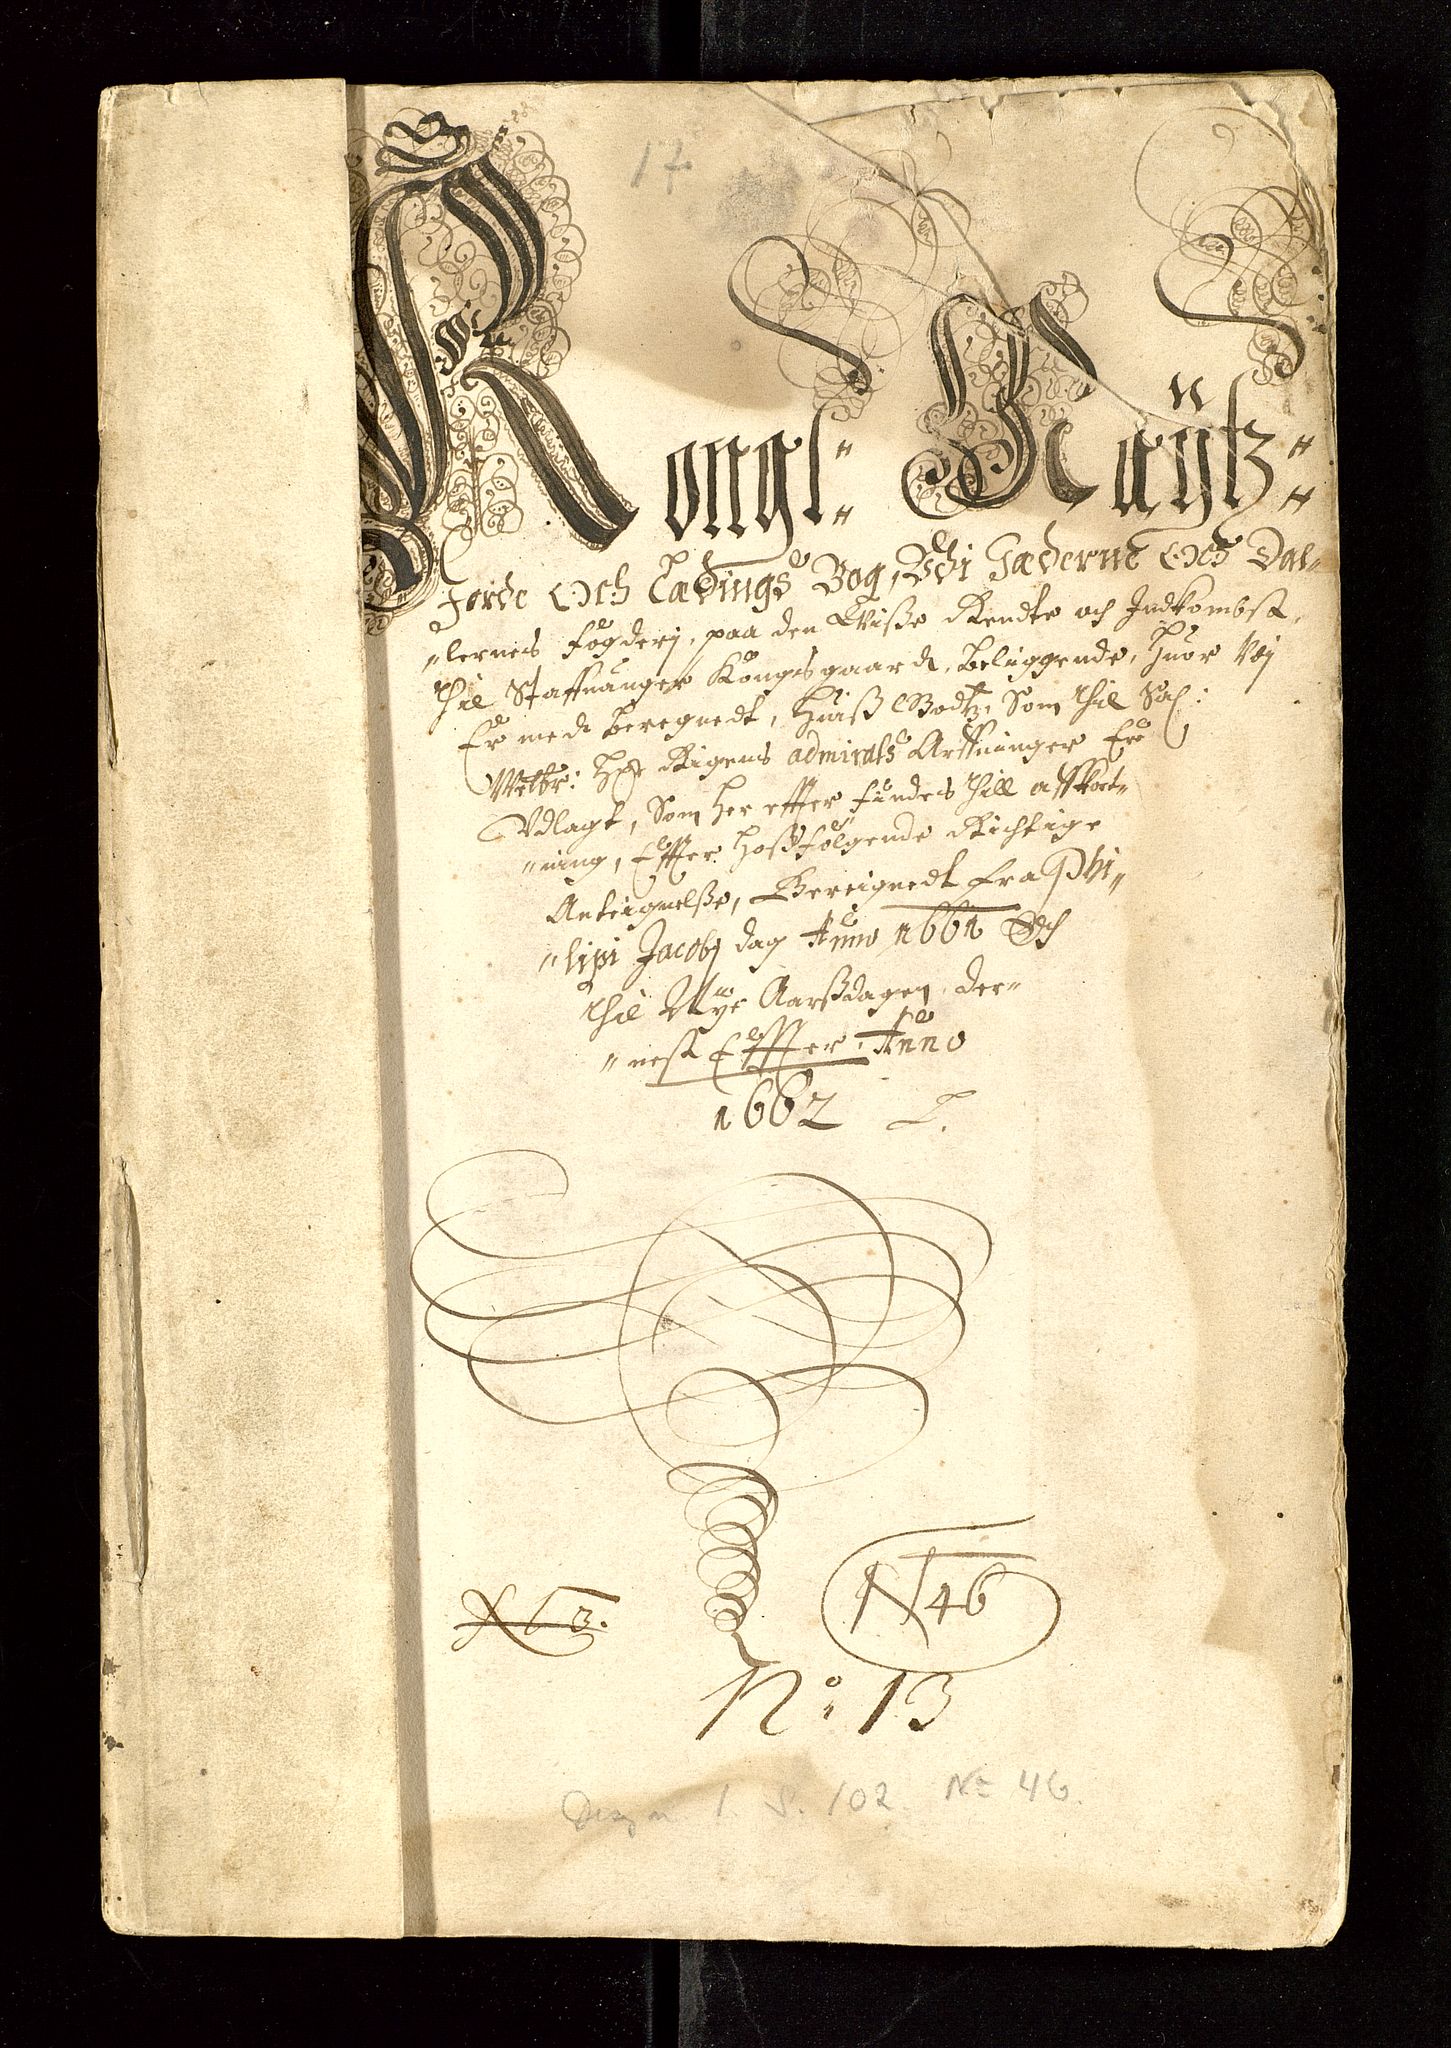 17
Kongl: Maÿtz:
Jorde Och Lædings Bog, Udi Jæderne Och Dal-
"lernes fogderj, paa den Wisse Rendte och Indkombst,
thil Staffuanger Kongsgaardt, beliggende, huor udj
Er medt beregnedt, huiss Godtz, Som thil Sal:
Welbr: Hr: Rigens admirals Arffuinger Er
Vdlagt, Som her effter findes thill affkort-
"ning, Effter hossfølgende Richtige
Anteignelsse, Bereignedt fra Phi"
"lipi Jacobj dag Anno 1661 Och
thil Nye Aarssdagen der"
"nest Effter Anno
1662
N 3.
N 46
No: 13
1. S. 102. No 46.